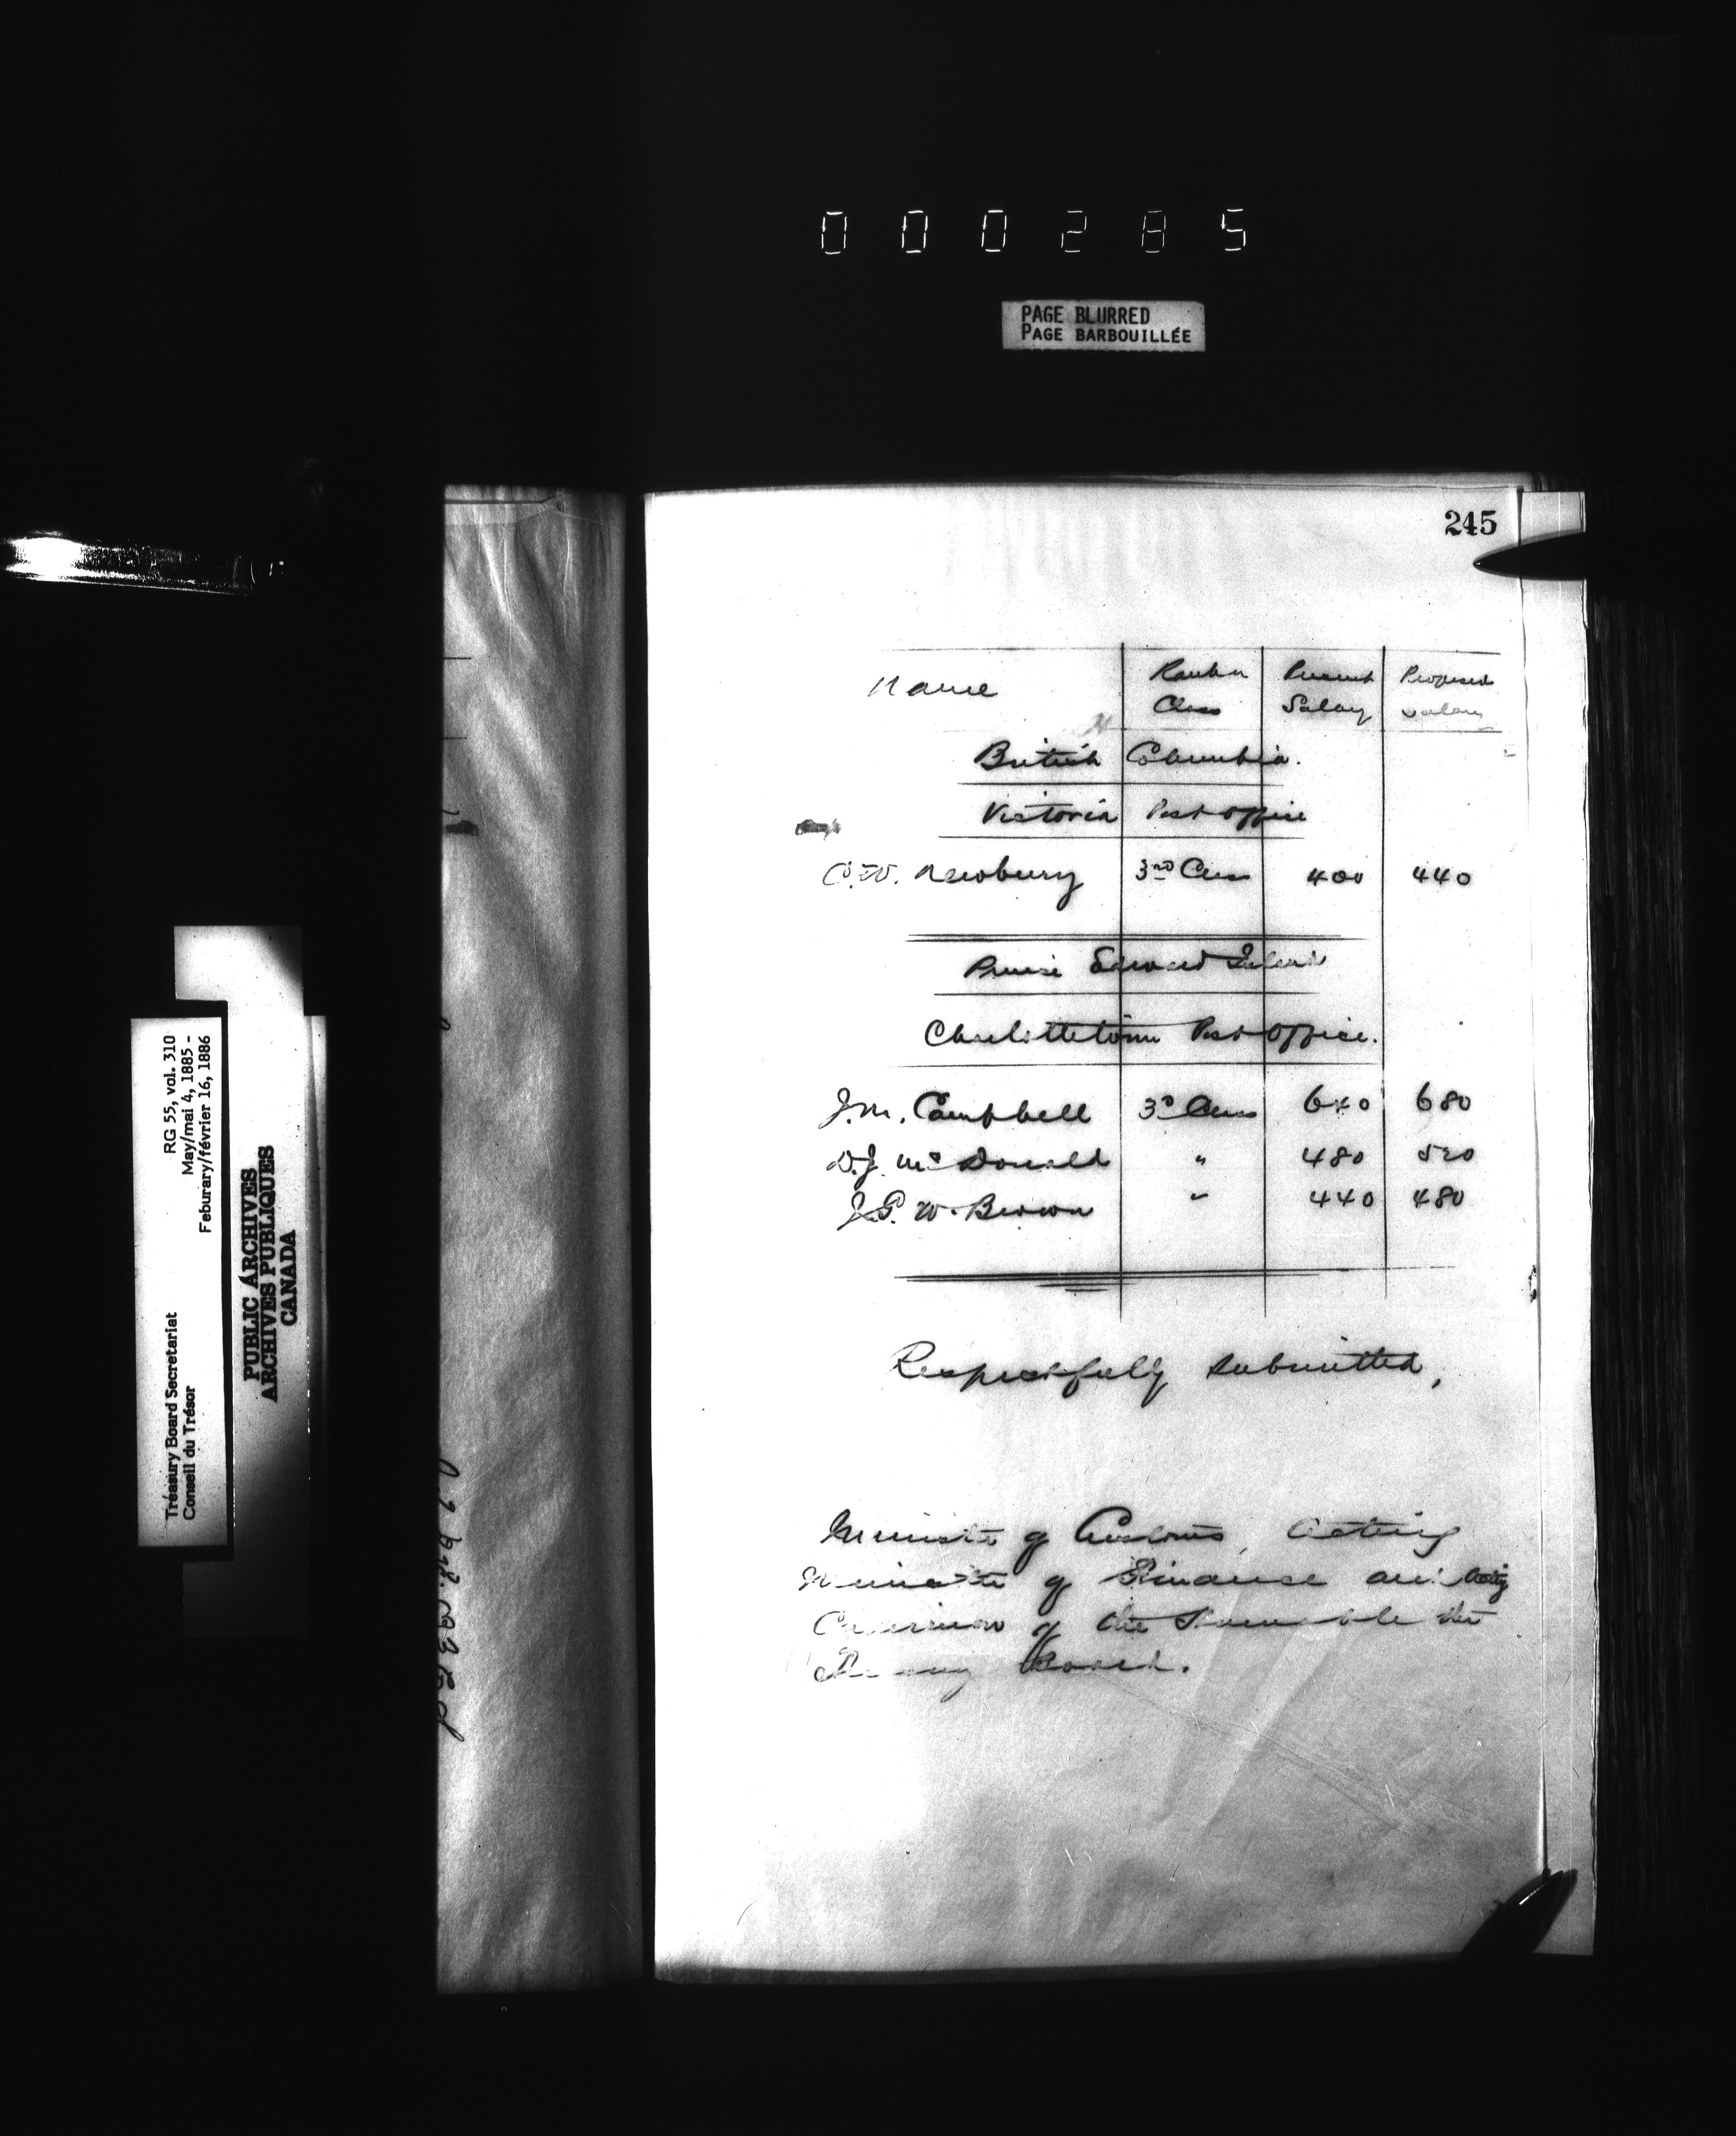 000285
PAGE BLURRED
PAGE BARBOUILLÉE
245
Name Rank or Class Present Salary Proposed Salary
British Columbia.
Victoria Post Office
C.W. Newbury 3rd Class 400 440
Prince Edward Island
Charlottetown Post Office.
J.M. Campbell 3d Class 640 680
D.J. McDonald " 480 520
J.G.W. Brown " 440 480
Respectfully submitted,
Minister of Customs, Acting
Minister of Finance and Acting
Chairman of the Honorable the
Treasury Board.
RG 55, vol. 310
May/mai 4, 1885 -
Feburary/février 16, 1886
Treasury Board Secretariat
Conseil du Trésor
PUBLIC ARCHIVES
ARCHIVES PUBLIQUES
CANADA